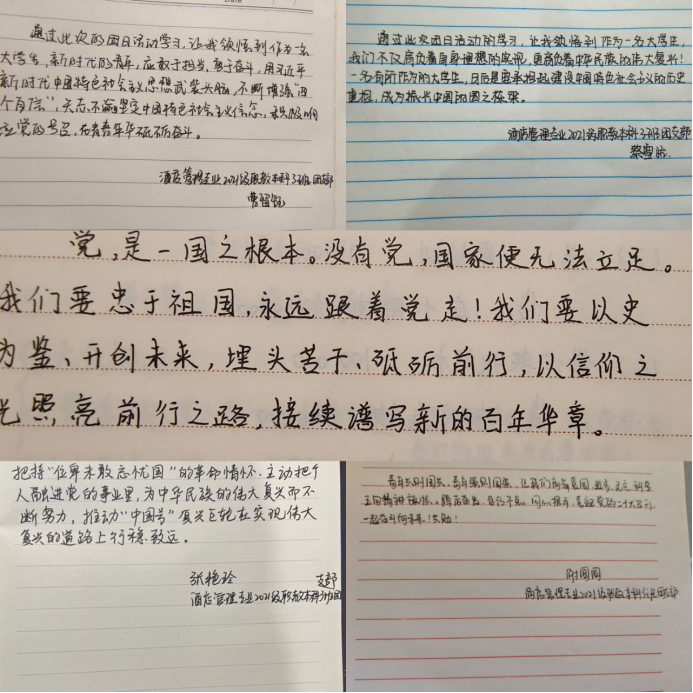 通过此次的团日活动学习，让我领悟到作为一名
大学生，新时代的青年，应敢于担当，勇于奋斗，用习近平
新时代中国特色社会主义思想武装头脑，不断增强"四
个自信"，矢志不渝坚定中国特色社会主义信念，积极响
应党的号召，在青春年华砥砺奋斗。
酒店管理专业2021级职教本科3班团支部
曹留锐
通过此次团日活动的学习，让我领悟到作为一名大学生，
我们不仅肩负着自身理想的实现，更肩负着中华民族的伟大复兴！
一名有所作为的大学生，日后是要承担起建设中国特色社会主义的历史
重担，成为振兴中国的国之栋梁。
酒店管理专业2021级职教本科3班团支部
党，是一国之根本。没有党，国家便无法立足。
我们要忠于祖国，永远跟着党走！我们要以史
为鉴、开创未来，埋头苦干、砥砺前行，以信仰之
光照亮前行之路，接续谱写新的百年华章。
把持"位卑未敢忘忧国"的革命情怀，主动把个
人融进党的事业里，为中华民族的伟大复兴而不
断努力，推动"中国号"复兴巨轮在实现伟大
复兴的道路上行稳致远。
张艳玲
支部
酒店管理专业2021级职教本科3班团
青年兴则国兴，青年强则国强，让我们高举爱国
五四精神旗帜
一起奋斗向未来！
酒店管理专业2021级职教本科